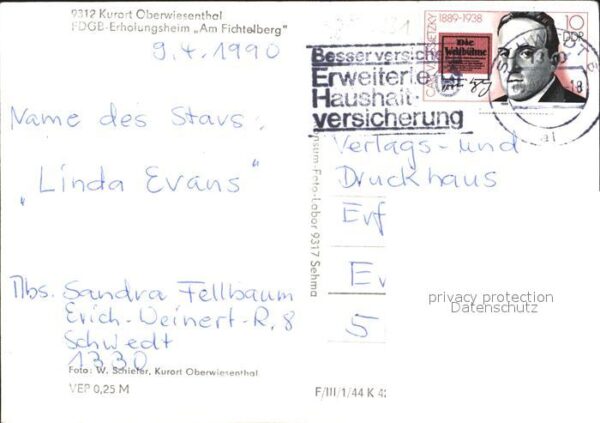 9312 Kurort Oberwiesenthal
FDGB-Erholungsheim „Am Fichtelberg"
9.4.1990
Name des Stars:
„Linda Evans"
Abs. Sandra Fellbaum
Erich-Weinert-R. 8
Schwedt
1330
Foto: W. Schiefer, Kurort Oberwiesenthal
VEP 0,25 M
1889-1938
10
DDR
Die
Weltbühne
Besser
Erweiterte
Haushalt-
versicherung
-18
Verlags- und
Druckhaus
Erf
5
Foto-Labor 9317 Sehma
privacy protection
Datenschutz
F/III/1/44 K 42